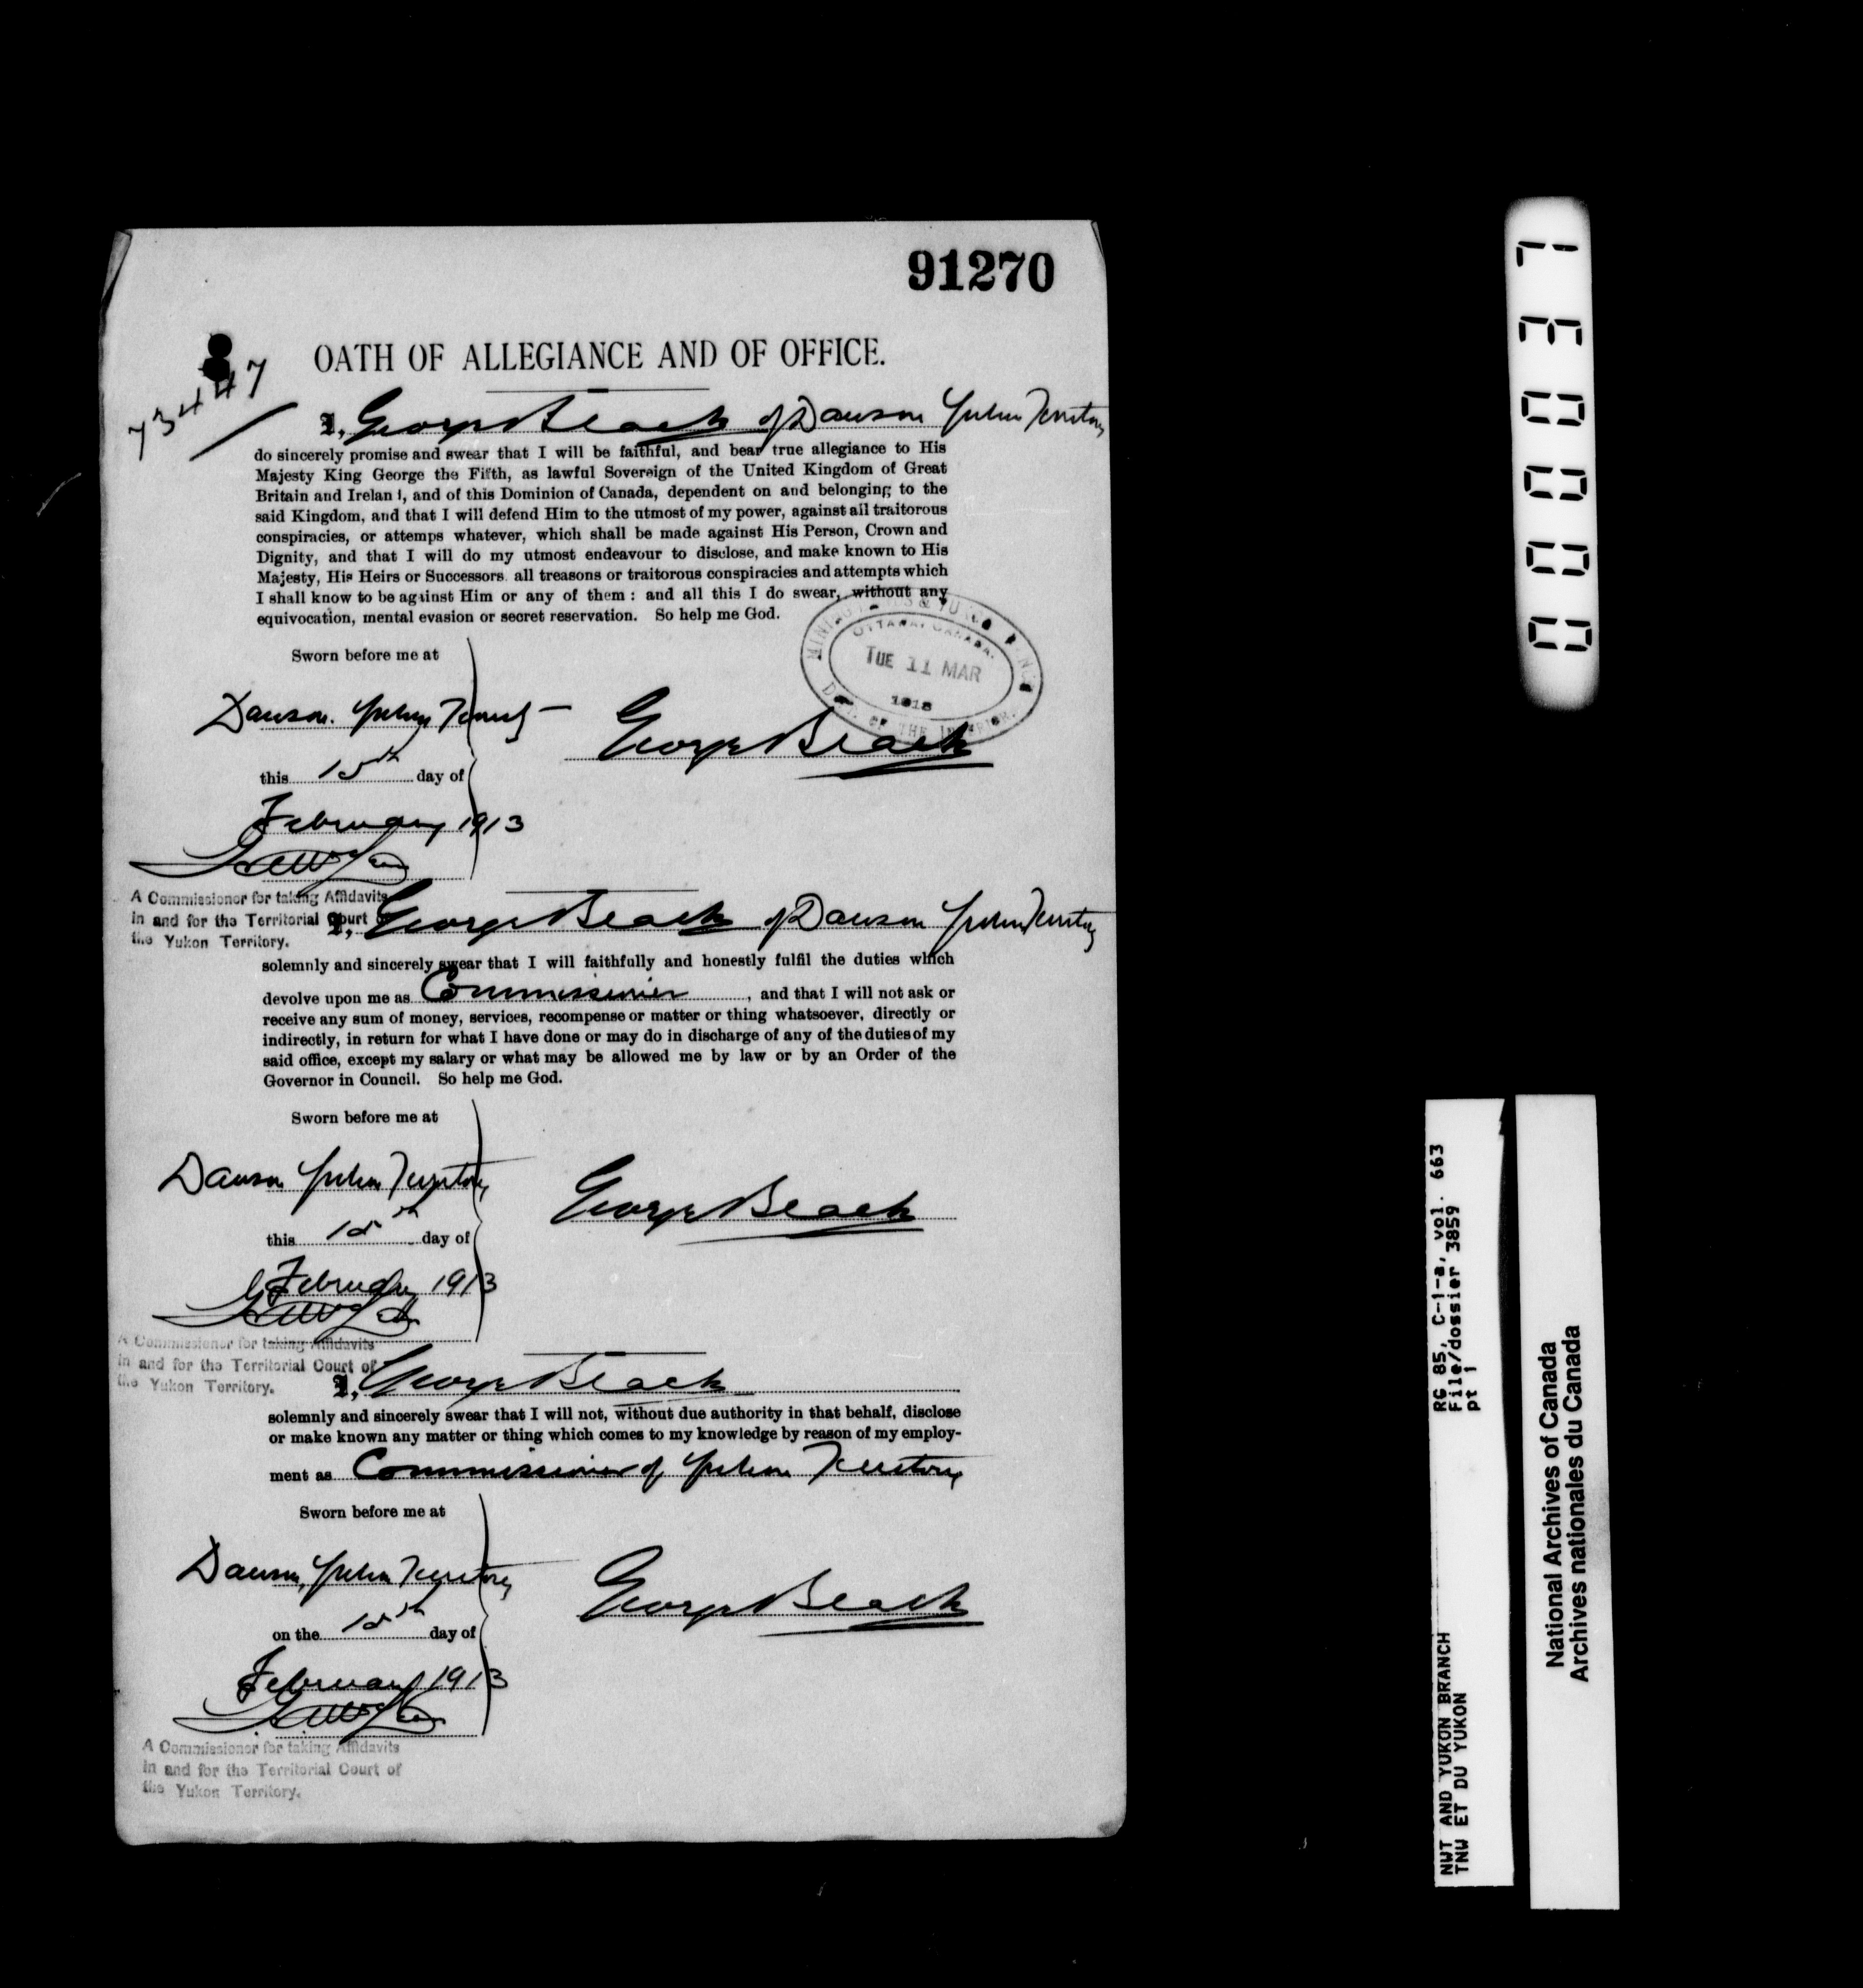 91270
OATH OF ALLEGIANCE AND OF OFFICE.
73447
I, George Black of Dawson Yukon Territory
do sincerely promise and swear that I will be faithful, and bear true allegiance to His
Majesty King George the Fifth, as lawful Sovereign of the United Kingdom of Great
Britain and Ireland, and of this Dominion of Canada, dependent on and belonging to the
said Kingdom, and that I will defend Him to the utmost of my power, against all traitorous
conspiracies, or attemps whatever, which shall be made against His Person, Crown and
Dignity, and that I will do my utmost endeavour to disclose, and make known to His
Majesty, His Heirs or Successors all treasons or traitorous conspiracies and attempts which
I shall know to be against Him or any of them : and all this I do swear, without any
equivocation, mental evasion or secret reservation. So help me God.
MINING LANDS & YUKON BRANCH
OTTAWA, CANADA.
TUE 11 MAR
DEPT. OF THE INTERIOR.
Sworn before me at
Dawson. Yukon Territory
George Black
this 15th day of
February 1913
A Commissioner for taking Affidavits
in and for the Territorial Court of
the Yukon Territory.
I, George Black of Dawson Yukon Territory
solemnly and sincerely swear that I will faithfully and honestly fulfil the duties which
devolve upon me as Commissioner, and that I will not ask or
receive any sum of money, services, recompense or matter or thing whatsoever, directly or
indirectly, in return for what I have done or may do in discharge of any of the duties of my
said office, except my salary or what may be allowed me by law or by an Order of the
Governor in Council. So help me God.
Sworn before me at
Dawson Yukon Territory
George Black
this 15th day of
February 1913
A Commissioner for taking Affidavits
in and for the Territorial Court of
the Yukon Territory.
I, George Black
solemnly and sincerely swear that I will not, without due authority in that behalf, disclose
or make known any matter or thing which comes to my knowledge by reason of my employ-
ment as Commissioner of Yukon Territory
Sworn before me at
Dawson, Yukon Territory
George Black
on the 15th day of
February 1913
A Commissioner for taking Affidavits
in and for the Territorial Court of
the Yukon Territory.
000037
NWT AND YUKON BRANCH RG 85, C-1-a, vol. 663
TNW ET DU YUKON File/dossier 3859
pt 1
National Archives of Canada
Archives nationales du Canada